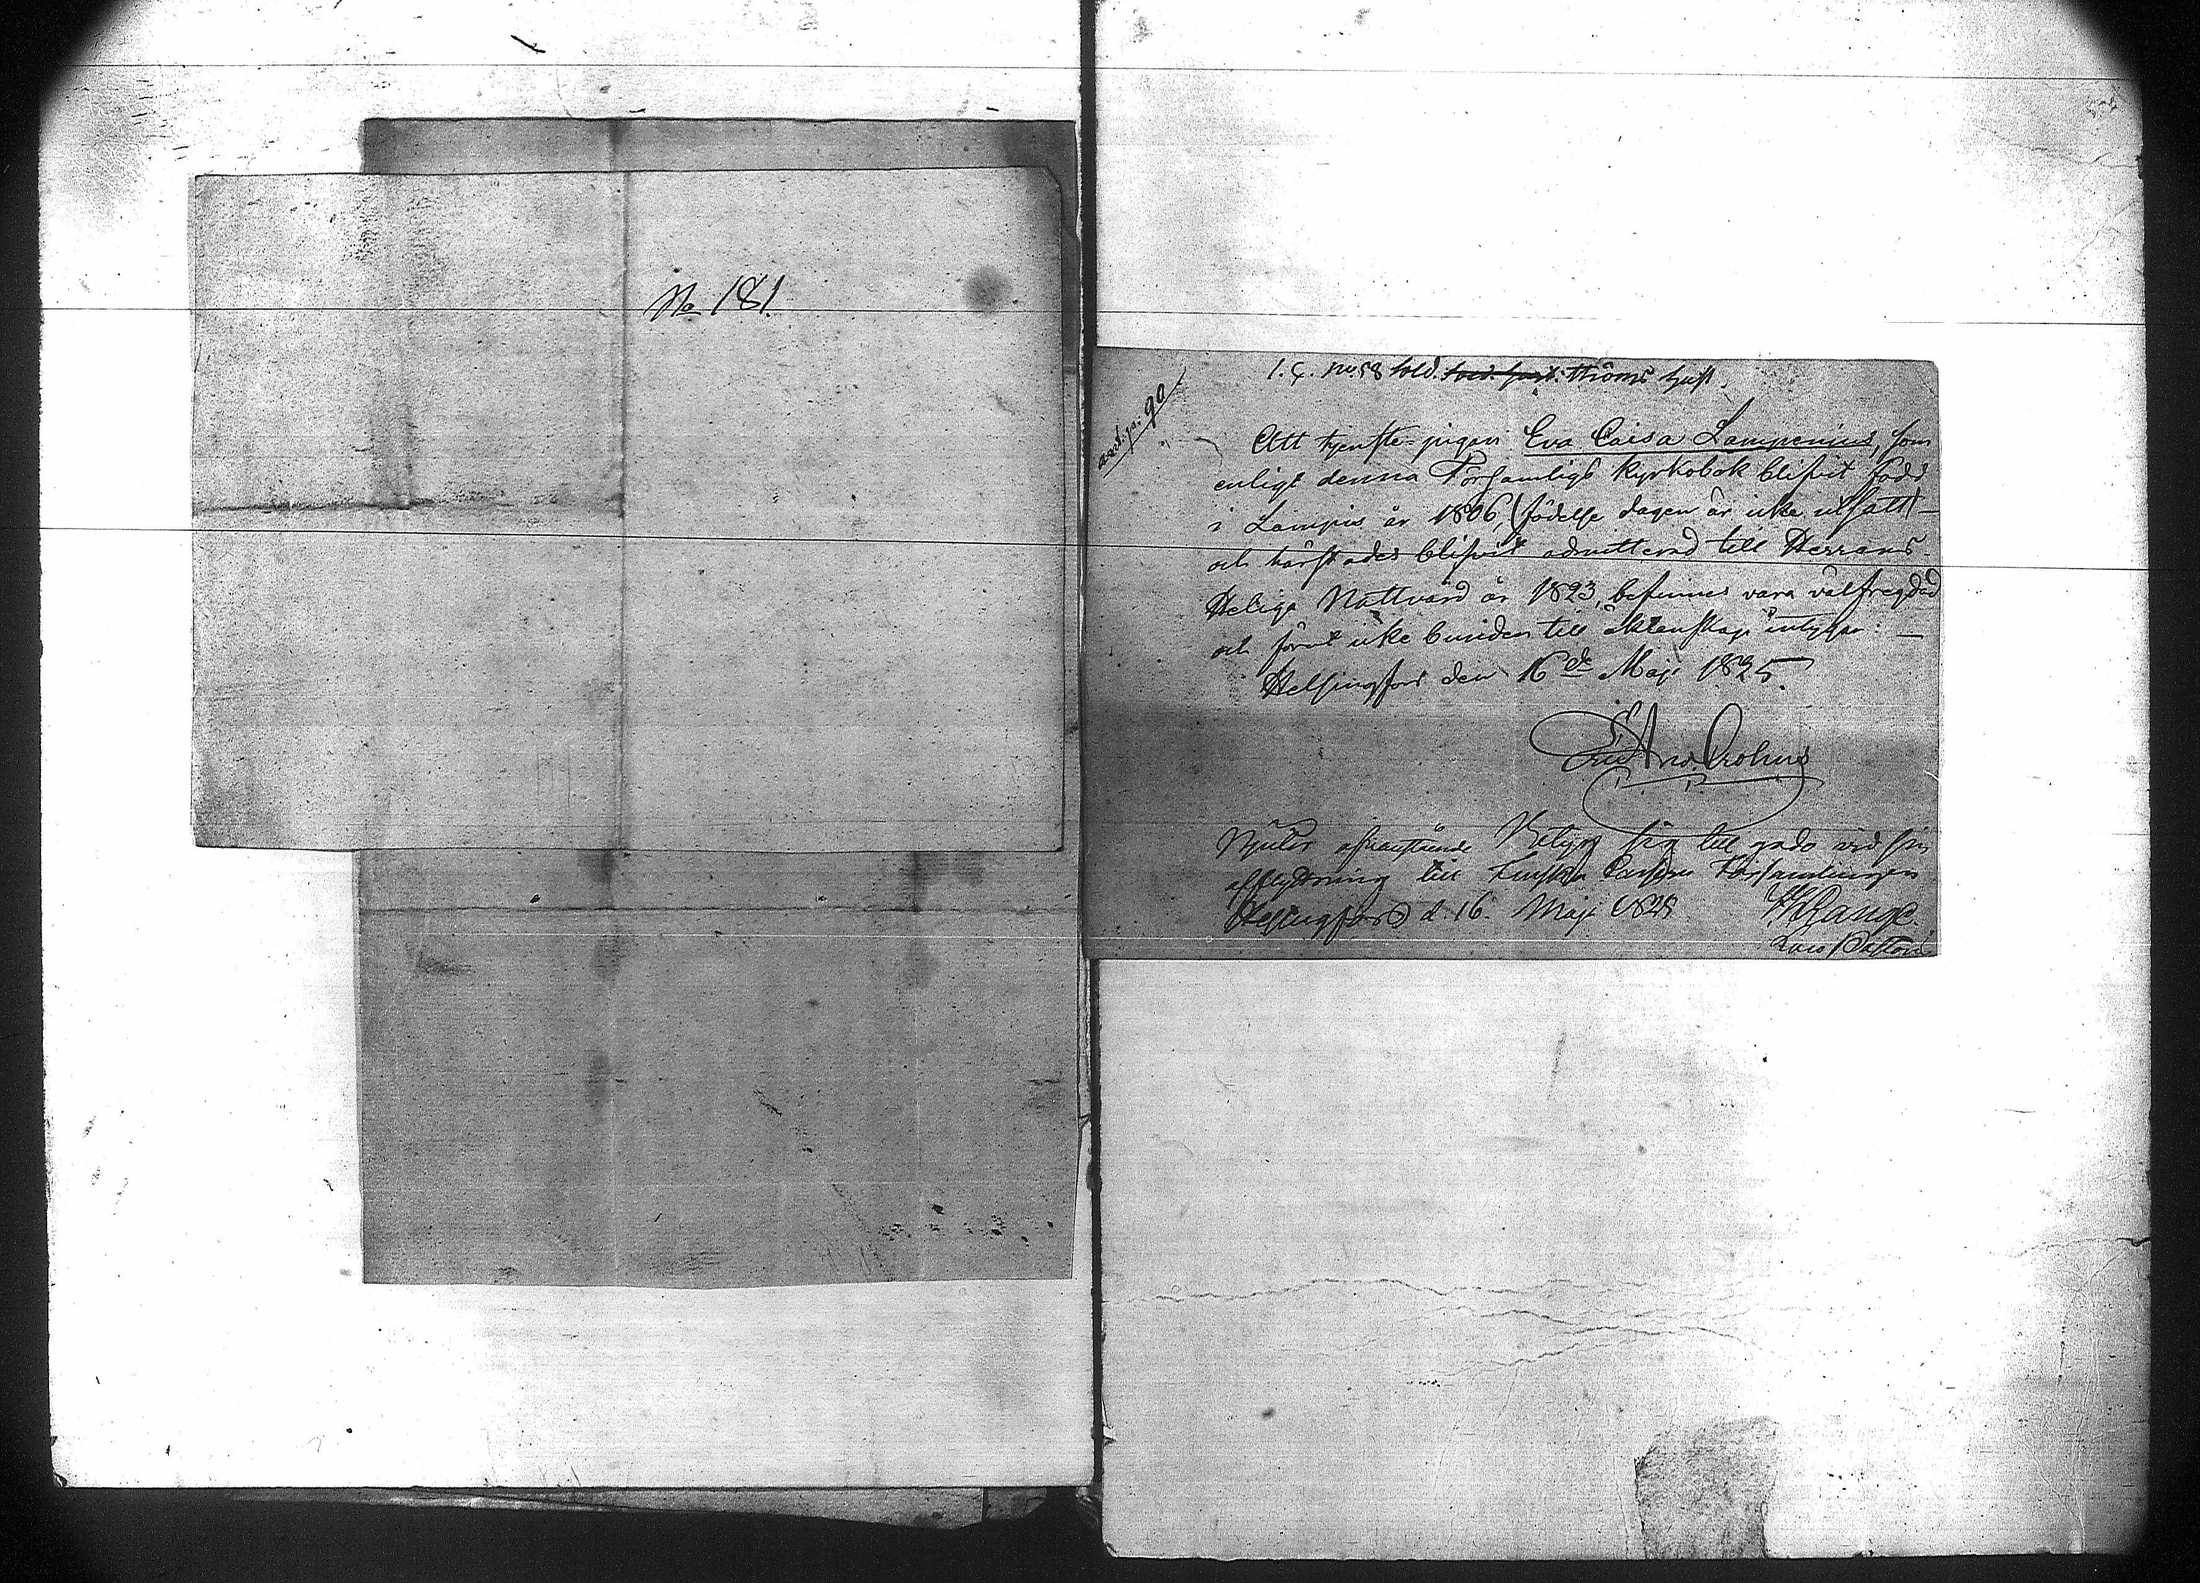 No 181.
1. C. no 58 sold. Thoms hust.
ant. p. 90
Att tjenste-pigan Eva Caisa Lampenius, som
enligt denna Församligs Kyrkobok blifvit född
i Lampis år 1806, (födelse dagen är icke utsatt) —
och härstädes blifvit admitterad till Herrans
Heliga Nattvard år 1823, befinnes vara välfregdad
och förut icke bunden till äktenskap intygar: —
Helsingfors den 16de Maji 1825.
Njuter ofvanstående Betyg sig till godo vid sin
afflyttning till Finska Församlingen
Helsingfors d. 16. Maji 1825